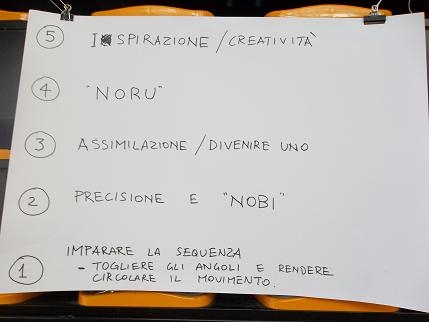 5 ISPIRAZIONE / CREATIVITÀ
4 "NORU"
3 ASSIMILAZIONE / DIVENIRE UNO
2 PRECISIONE E "NOBI"
1 IMPARARE LA SEQUENZA
- TOGLIERE GLI ANGOLI E RENDERE
CIRCOLARE IL MOVIMENTO.